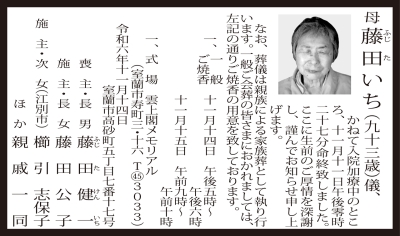 母 藤田いち（九十三歳）儀、
ふじた
かねて入院加療中のとこ
ろ、十一月十一日午後零時
二十七分命終致しました。
ここに生前のご厚情を深謝
し、謹んでお知らせ申し上
げます。
なお、葬儀は親族による家族葬として執り行
います。一般ご会葬の皆さまにおかれましては、
左記の通りご焼香の用意を致しております。
一、一般 十一月十四日 午後五時〜
午後六時
ご焼香
十一月十五日 午前九時〜
午前十時
一、式場 雲上閣メモリアル
（室蘭市寿町二-十六 T㊺3033）
令和六年十一月十四日
室蘭市高砂町五丁目七番十七号
喪主・長男 藤田健一
ふじた けんいち
施主・長女 藤田公子
施主・次女（江別市） 櫛引志保子
ほか親戚一同